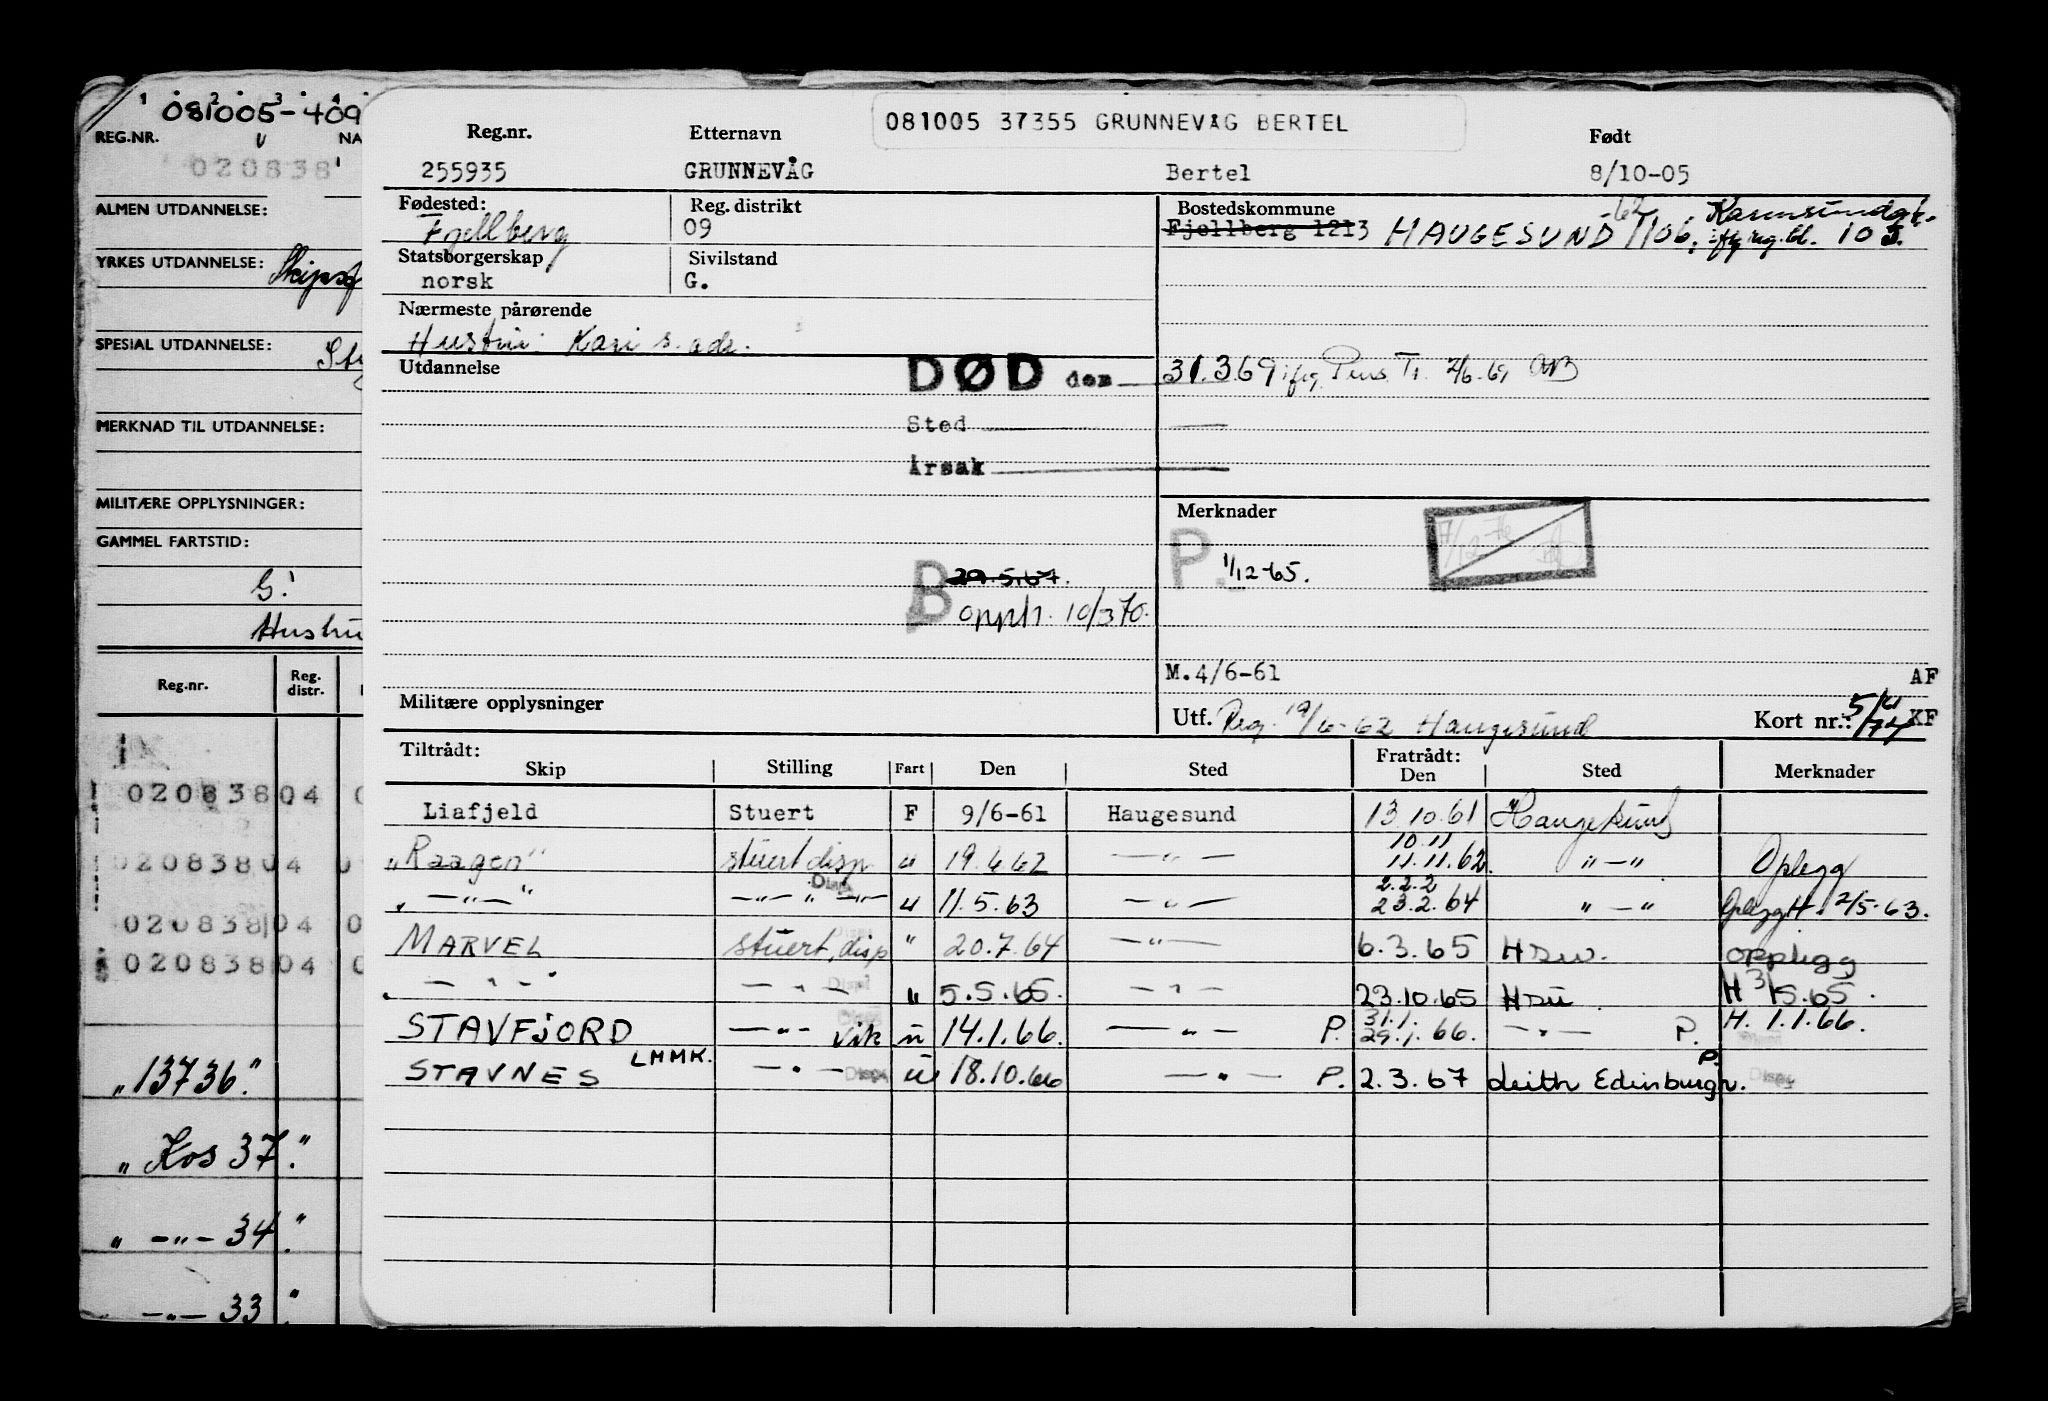 081005-409
REG.NR. NA
020838
ALMEN UTDANNELSE:
YRKES UTDANNELSE:
SPESIAL UTDANNELSE:
MERKNAD TIL UTDANNELSE:
MILITÆRE OPPLYSNINGER:
GAMMEL FARTSTID:
G!
Hustru
Reg.nr. Reg. distr.
020838 04 0
020838 04 0
020838 04 0
020838 04 0
„13736."
„Kos 37."
„ —"— 34."
—"— 33."
081005 37355 GRUNNEVÅG BERTEL
Reg.nr. Etternavn Født
255935 GRUNNEVÅG Bertel 8/10-05
Fødested: Reg. distrikt Bostedskommune
Fjellberg 09 Fjellberg 1213 HAUGESUND 1106,
Statsborgerskap Sivilstand
norsk G.
Nærmeste pårørende
Hustru: Kari s. adr.
Utdannelse
DØD den 31.3.69 ifg. Pens. Tr. 2/6-69
Sted
Årsak
Merknader
P. 1/12-65.
B 29.5.67.
opph. 10/3.70.
M.4/6-61 AF
Militære opplysninger
Utf. Reg. 19/6-62 Haugesund Kort nr.: KF
Tiltrådt: Fratrådt:
Skip Stilling Fart Den Sted Den Sted Merknader
Liafjeld Stuert F 9/6-61 Haugesund 13.10.61 Haugesund
10.11
„Raagen" stuert disp " 19.6.62 —"— 11.11.62 "—" Oplegg
2.2.2
„—"—" —"— " —"— " 11.5.63 —"— 23.2.64 "—" Oplegg H. 2/5-63.
MARVEL stuert, disp " 20.7.64 —"— 6.3.65 Hsu. opplegg
—"— —"— " 5.5.65. —"— 23.10.65 Hsu. H 3/5.65.
31.1.
STAVFJORD —"— vik " 14.1.66. —"— P. 29.1.66. —"— P. H. 1.1.66.
STAVNES LHMK. —"— " 18.10.66 —"— P. 2.3.67 Leith Edinburgh. P.